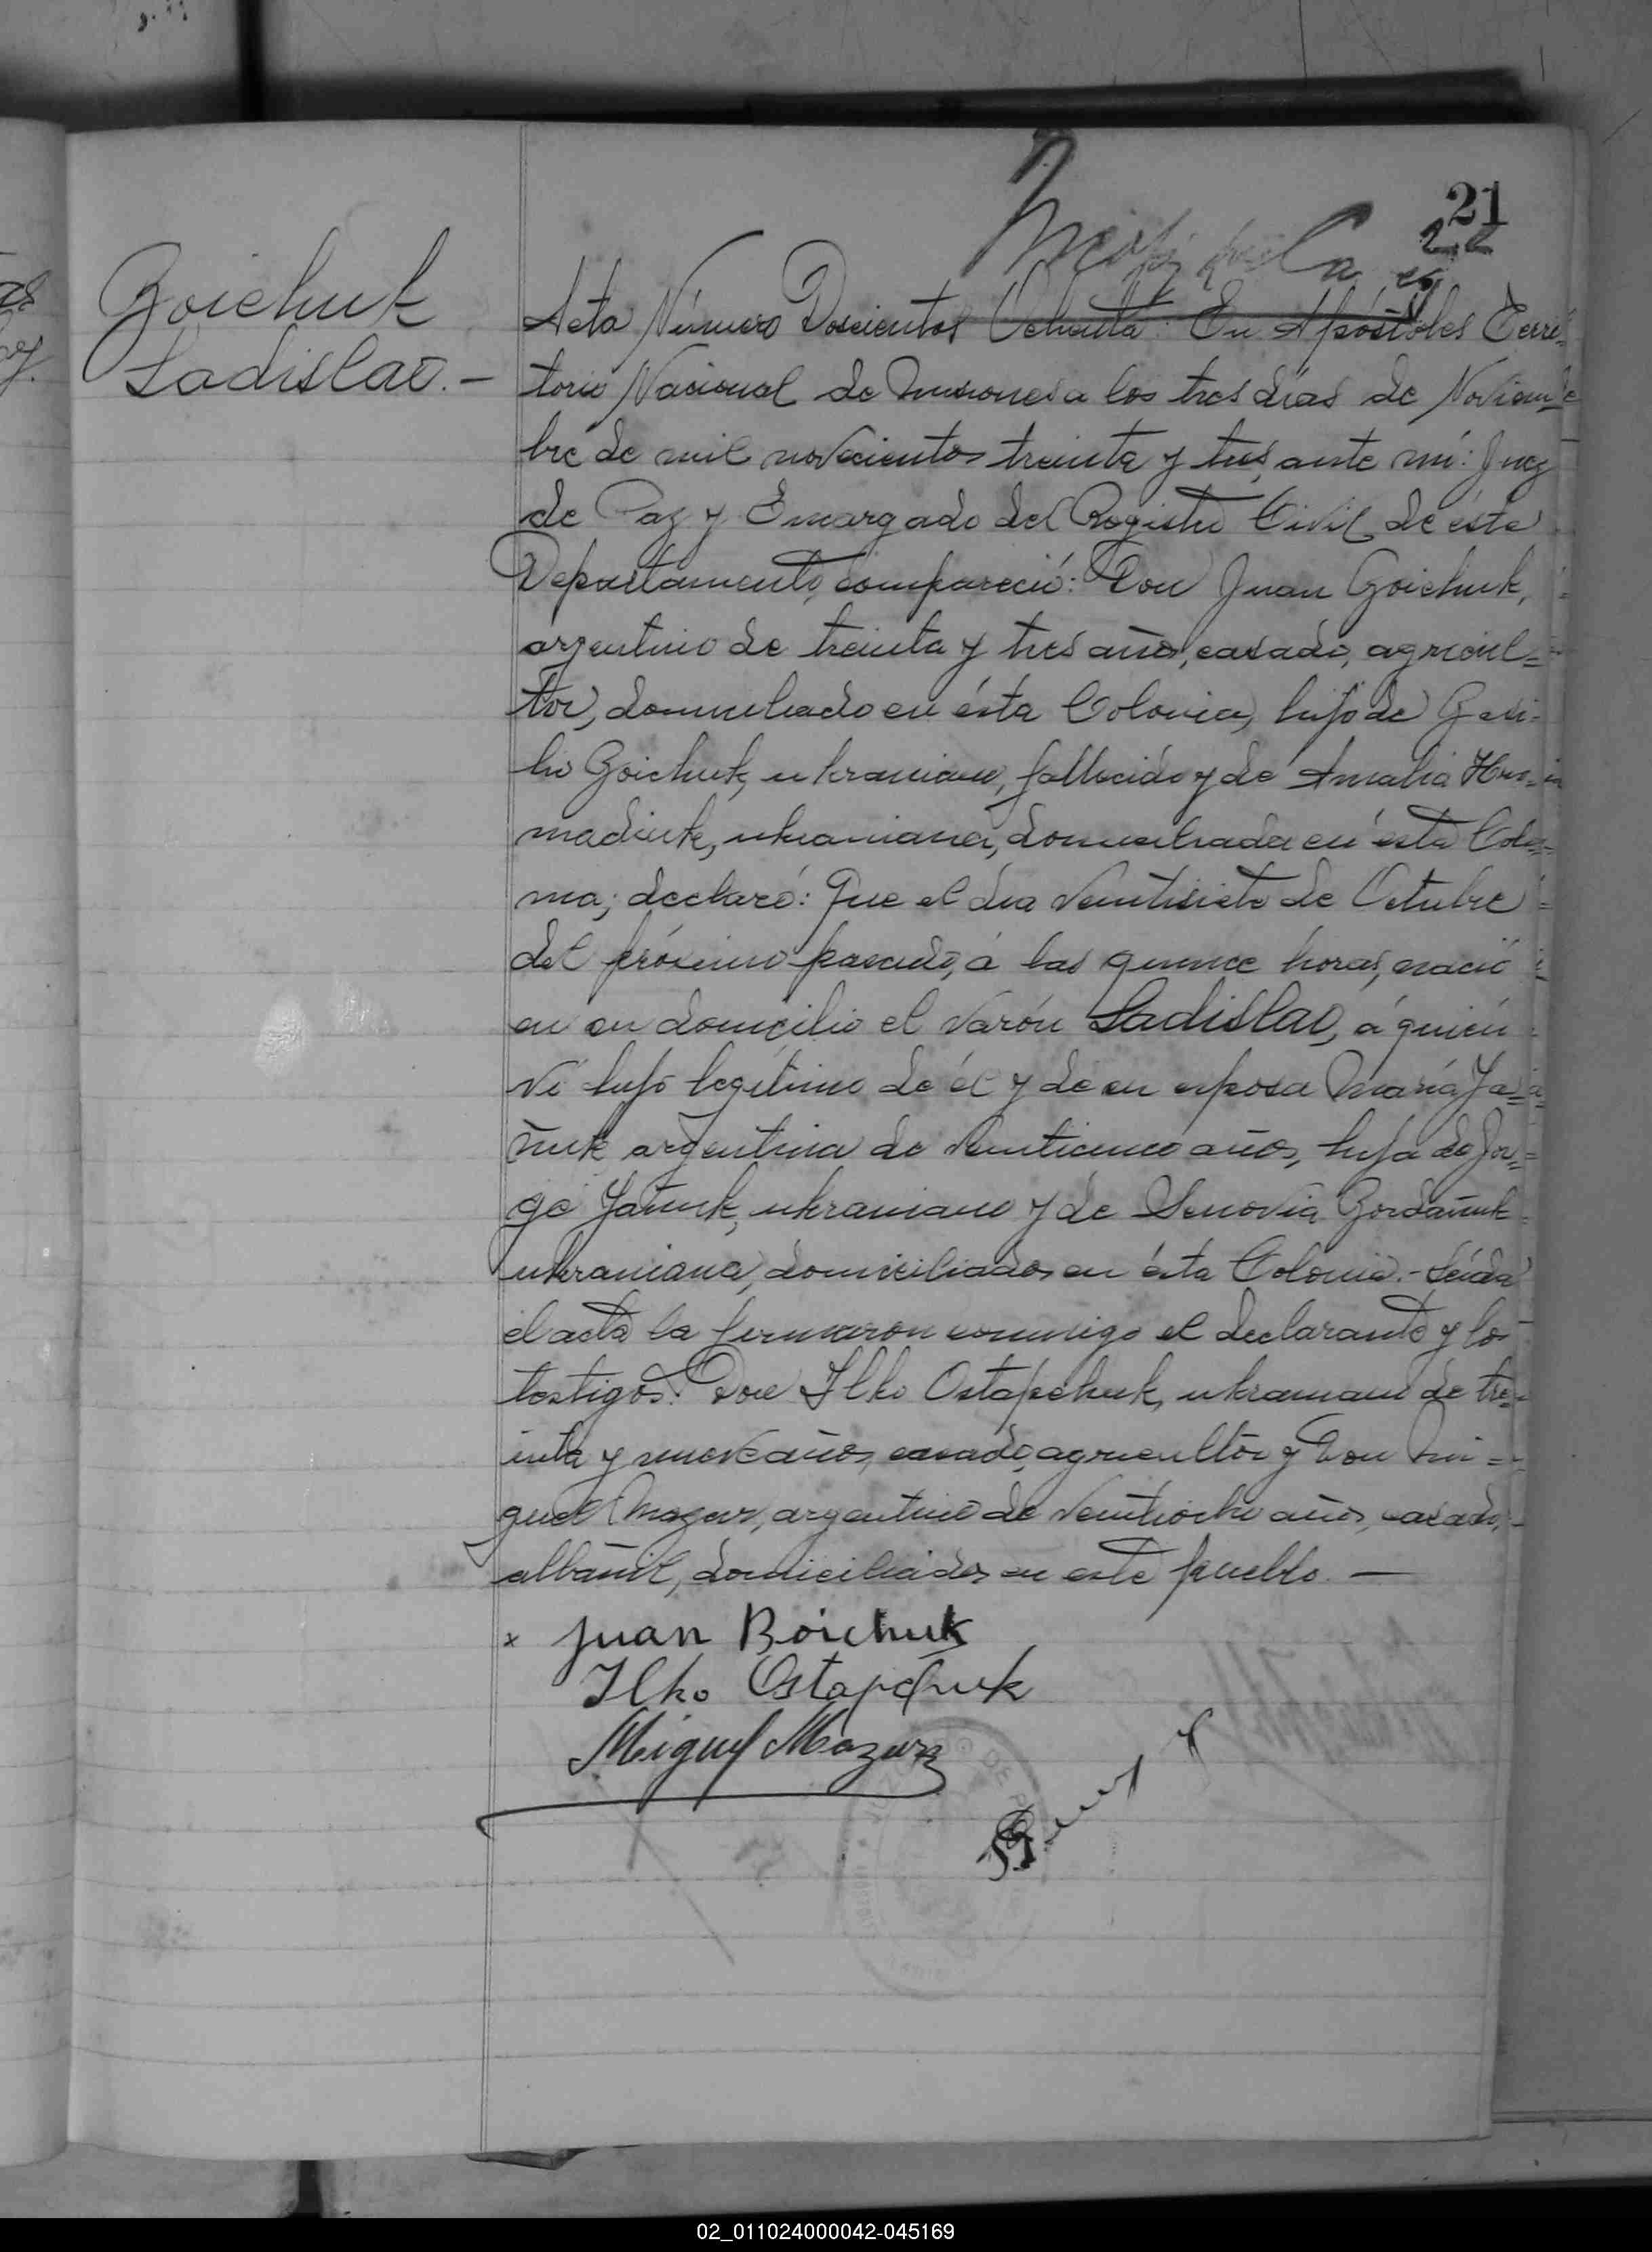 21
22
Boichuk
Ladislao.-
Acta Número Doscientos Ochenta: En Apóstoles Terri-
torio Nacional de Misiones a los tres días de Noviem-
bre de mil novecientos treinta y tres, ante mí: Juez
de Paz y Encargado del Registro Civil de éste
Departamento, compareció: Don Juan Boichuk,
argentino de treinta y tres años, casado, agricul=
tor, domiciliado en ésta Colonia, hijo de
Boichuk, ukraniano, fallecido y de Amalia Hro=
madiuk, ukraniana, domiciliada en ésta Colo=
nia; declaró: Que el día veintisiete de Octubre
del próximo pasado, á las quince horas, nació
en su domicilio el varón Ladislao, á quién
vi hijo legítimo de él y de su esposa María Ja=
ñuk argentina de veinticinco años, hija de Jor=
ge Jañuk, ukraniano y de Senovia Bordañuk
ukraniana, domiciliados en ésta Colonia.- Leída
el acta la firmaron conmigo el declarante y los
testigos: Don Ilko Ostapchuk, ukraniano de tre-
inta y nueve años, casado, agricultor y Don Mi=
guel Mazur, argentino de veintiocho años, casado,
albañil, domiciliados en este pueblo. —
x Juan Boichuk
Ilko Ostapchuk
Miguel Mazur
02_011024000042-045169